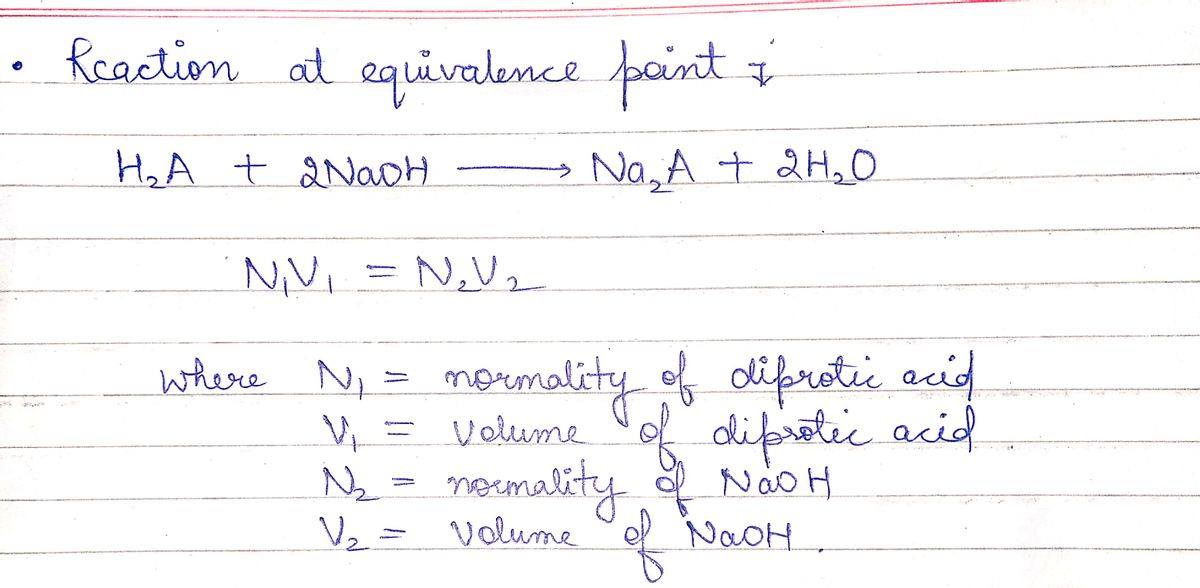 • Reaction at equivalence point :
H₂A + 2NaOH ⟶ Na₂A + 2H₂O
N₁V₁ = N₂V₂
where N₁ = normality of diprotic acid
V₁ = Volume of diprotic acid
N₂ = normality of NaOH
V₂ = Volume of NaOH.